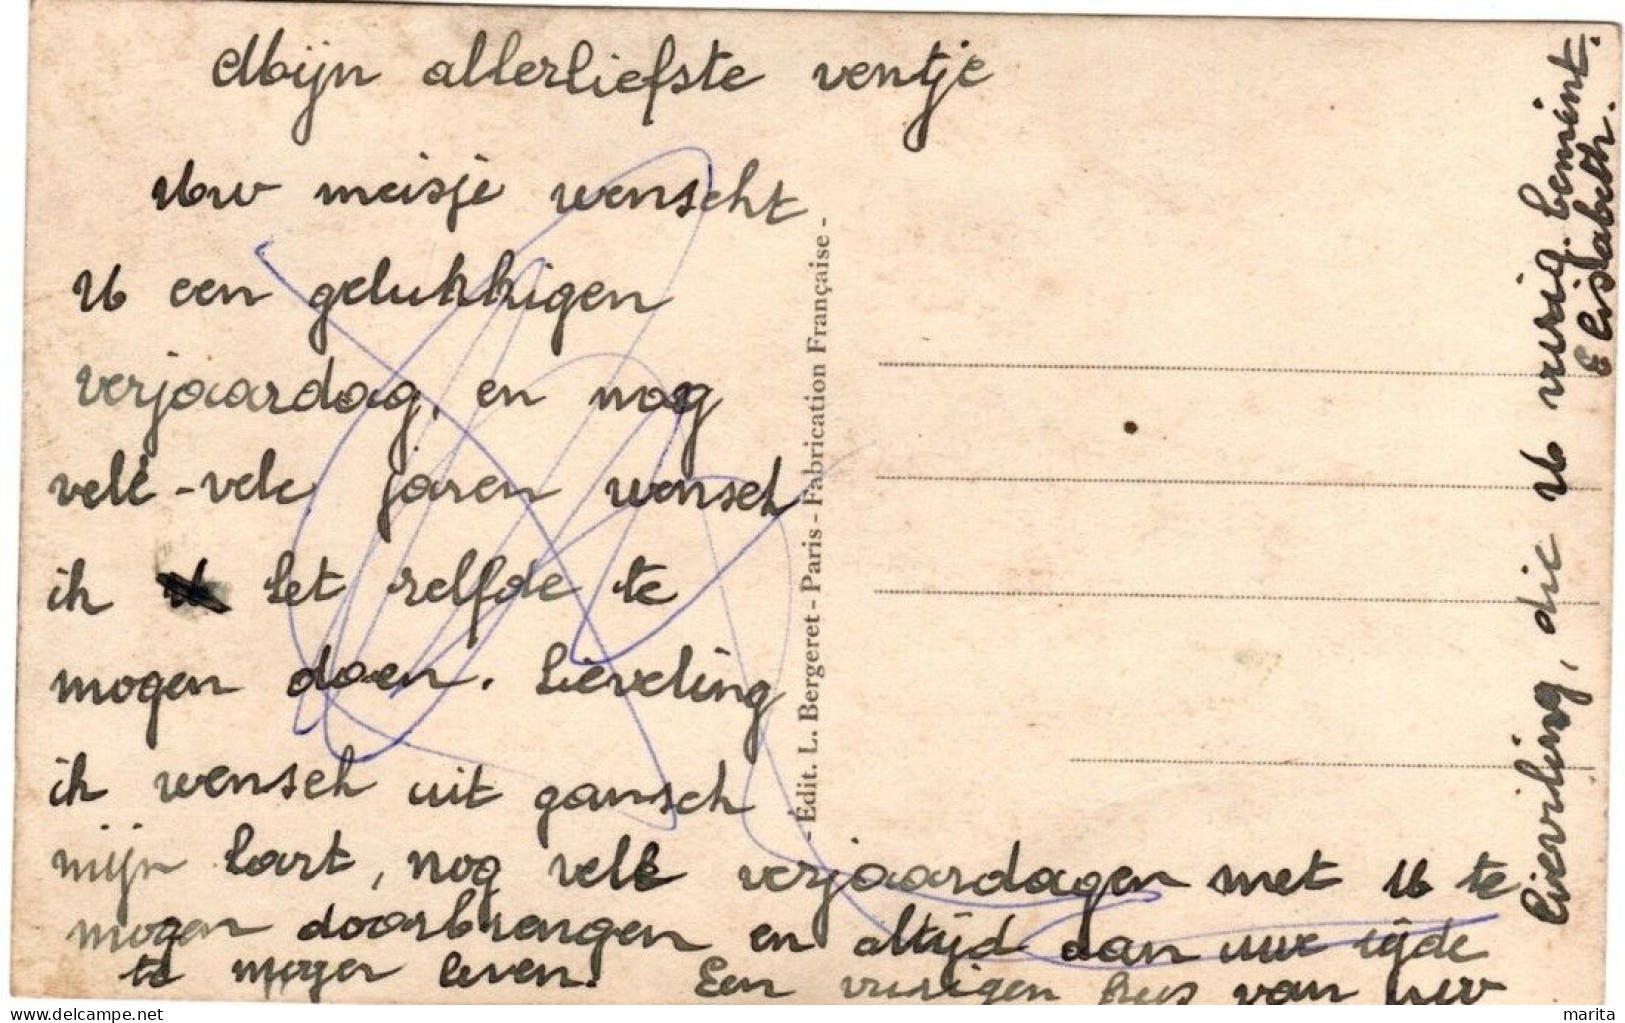 Mijn allerliefste ventje
Uw meisje wenscht
U een gelukkigen
verjaardag, en nog
vele-vele jaren wensch
ik het zelfde te
mogen doen. Lieveling
ik wensch uit gansch
mijn hart, nog vele verjaardagen met U te
mogen doorbrengen en altijd aan uwe zijde
te mogen leven. Een vurigen kus van uw
lieveling, die U vurig bemint.
Elisabeth.
- Édit. L. Bergeret - Paris - Fabrication Française -
delcampe.net
marita